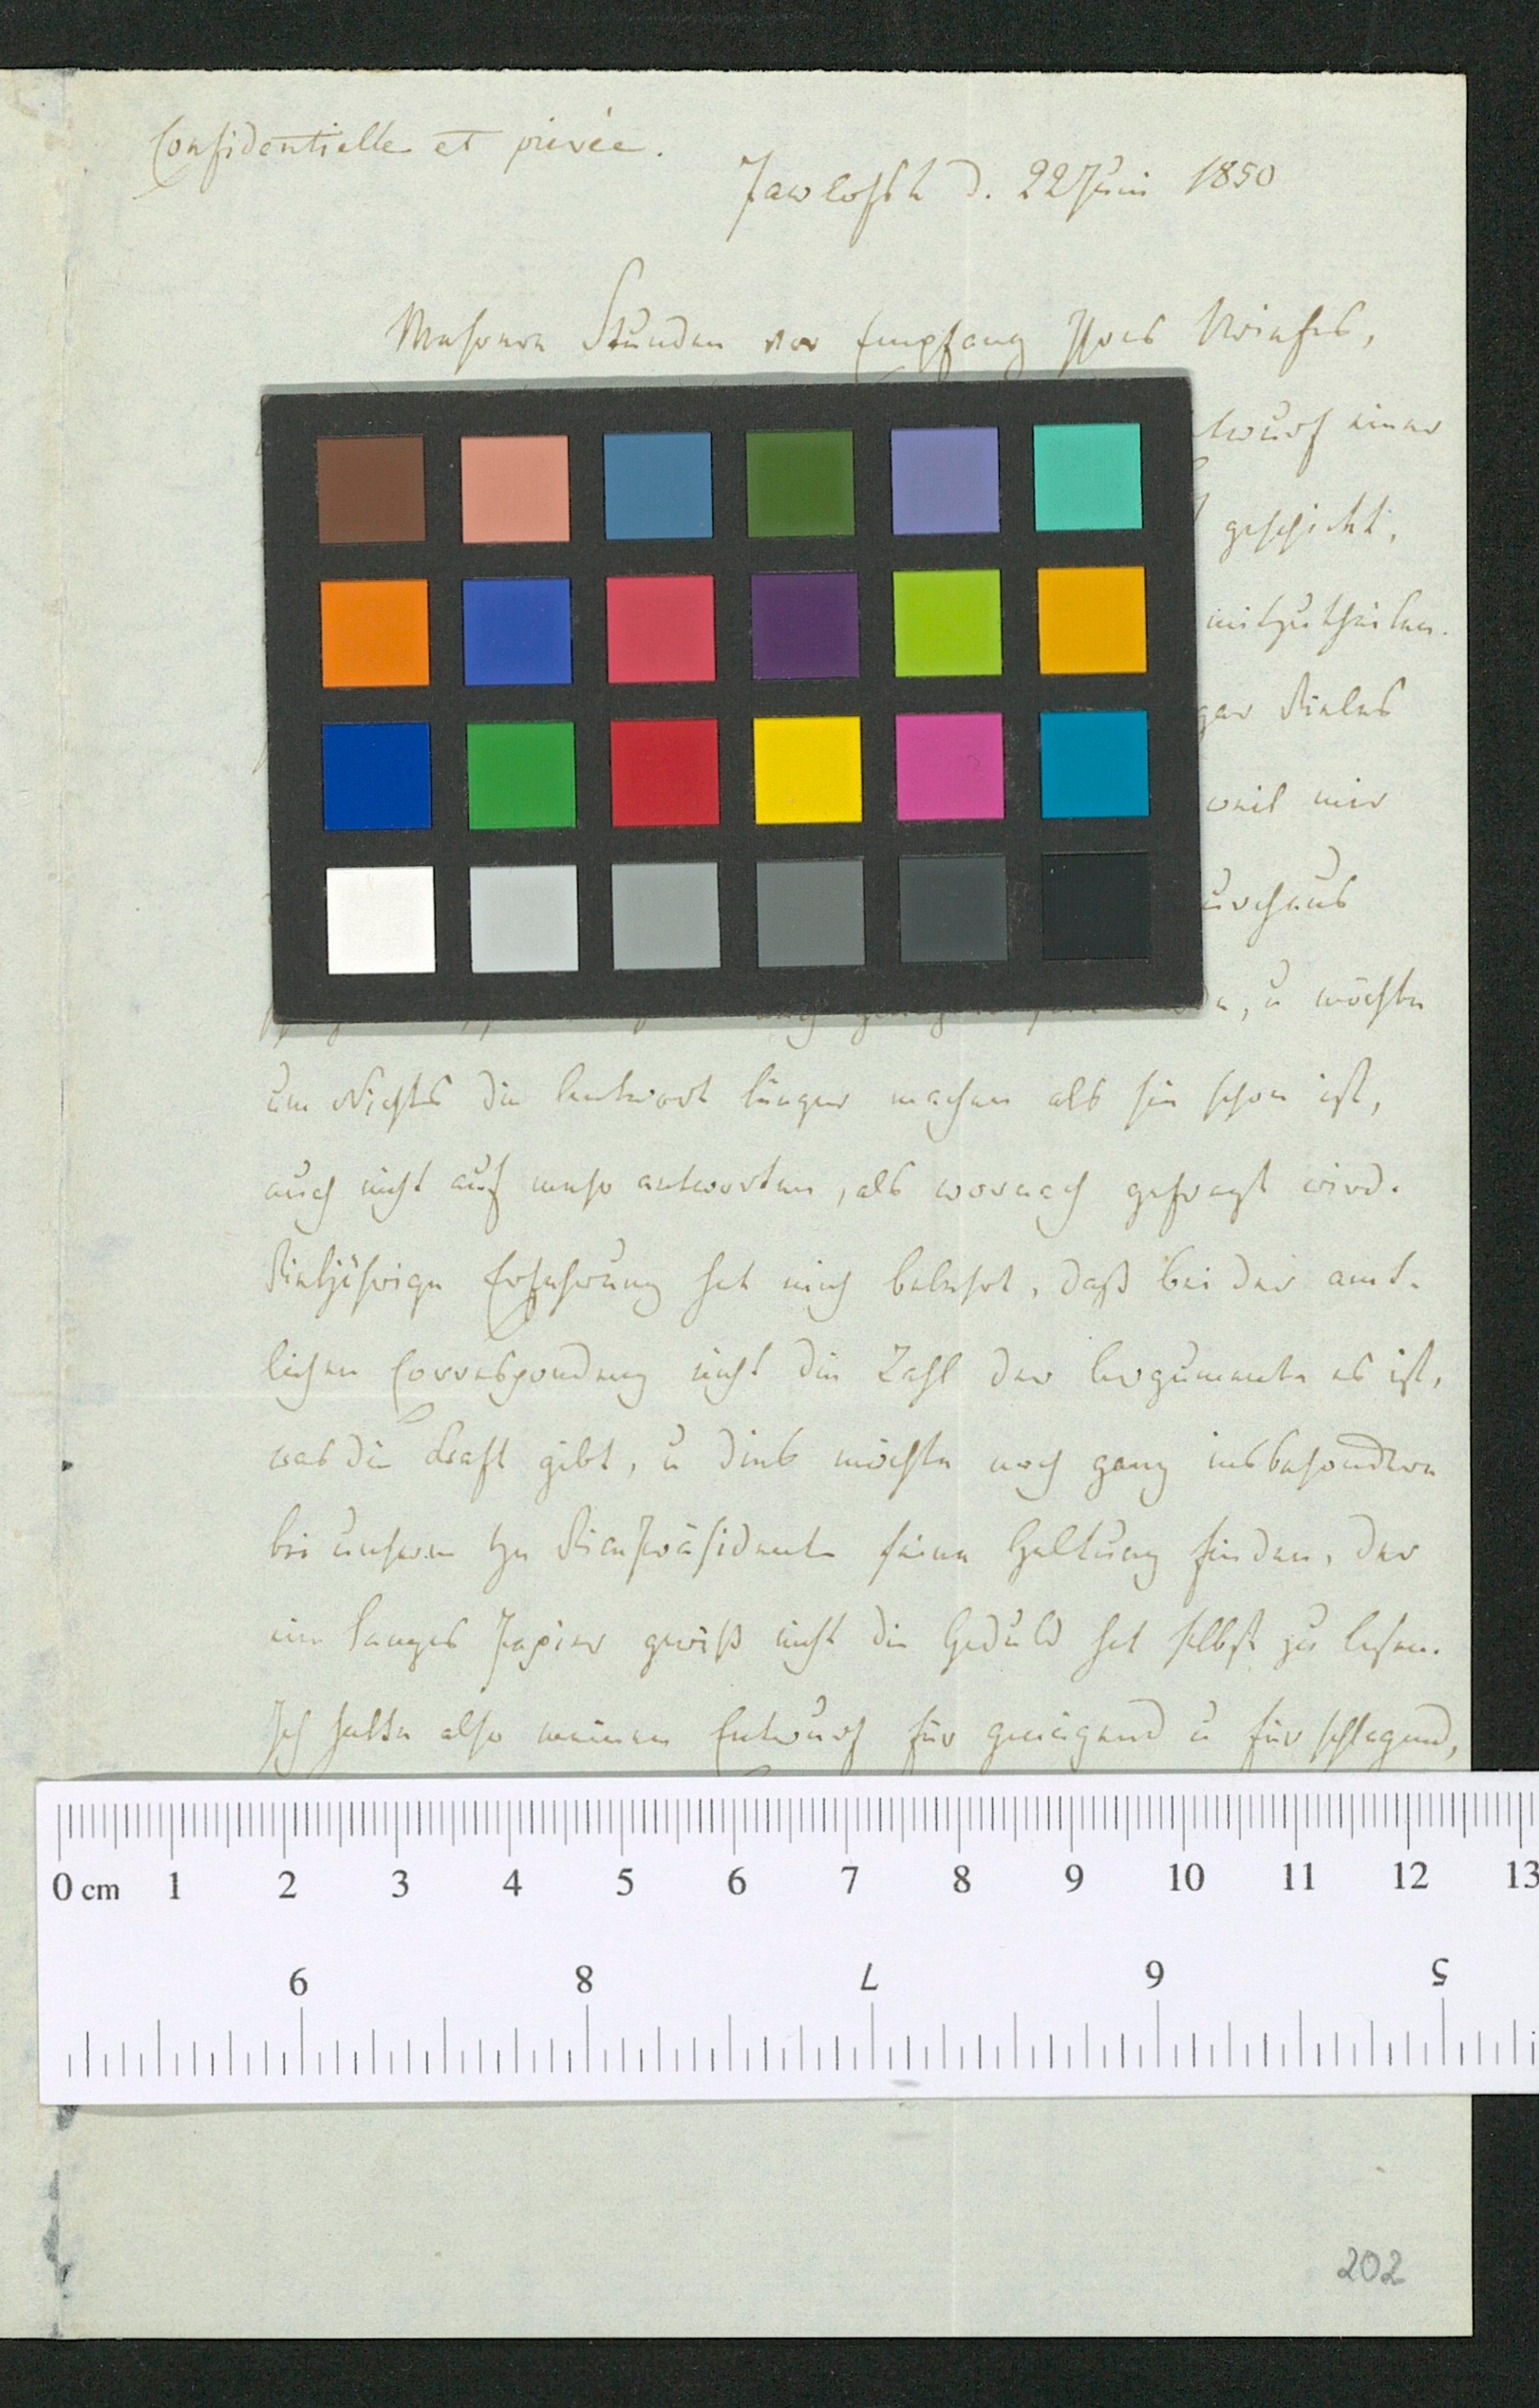 Confidentielle et privée.
Pawlofsk d. 22 Juni 1850
Mehrere Stunden vor Empfang Ihres Briefes,
twurf einer
geschickt,
mitzutheilen.
gar Vieles
weil mir
urchaus
n, u möchte
um Nichts die Antwort länger machen als sie schon ist,
auch nicht auf mehr antworten, als wornach gefragt wird.
Vieljährige Erfahrung hat mich belehrt, daß bei der amt-
lichen Correspondenz nicht die Zahl der Argumente es ist,
was die Kraft gibt, u dieß möchte noch ganz insbesondere
bei unserem Hn Vicepräsidenten seine Geltung finden, der
ein langes Papier gewiß nicht die Geduld hat selbst zu lesen.
Ich halte also meinen Entwurf für genügend u für schlagend,
0 cm 1 2 3 4 5 6 7 8 9 10 11 12 13
9 8 7 6 5
202